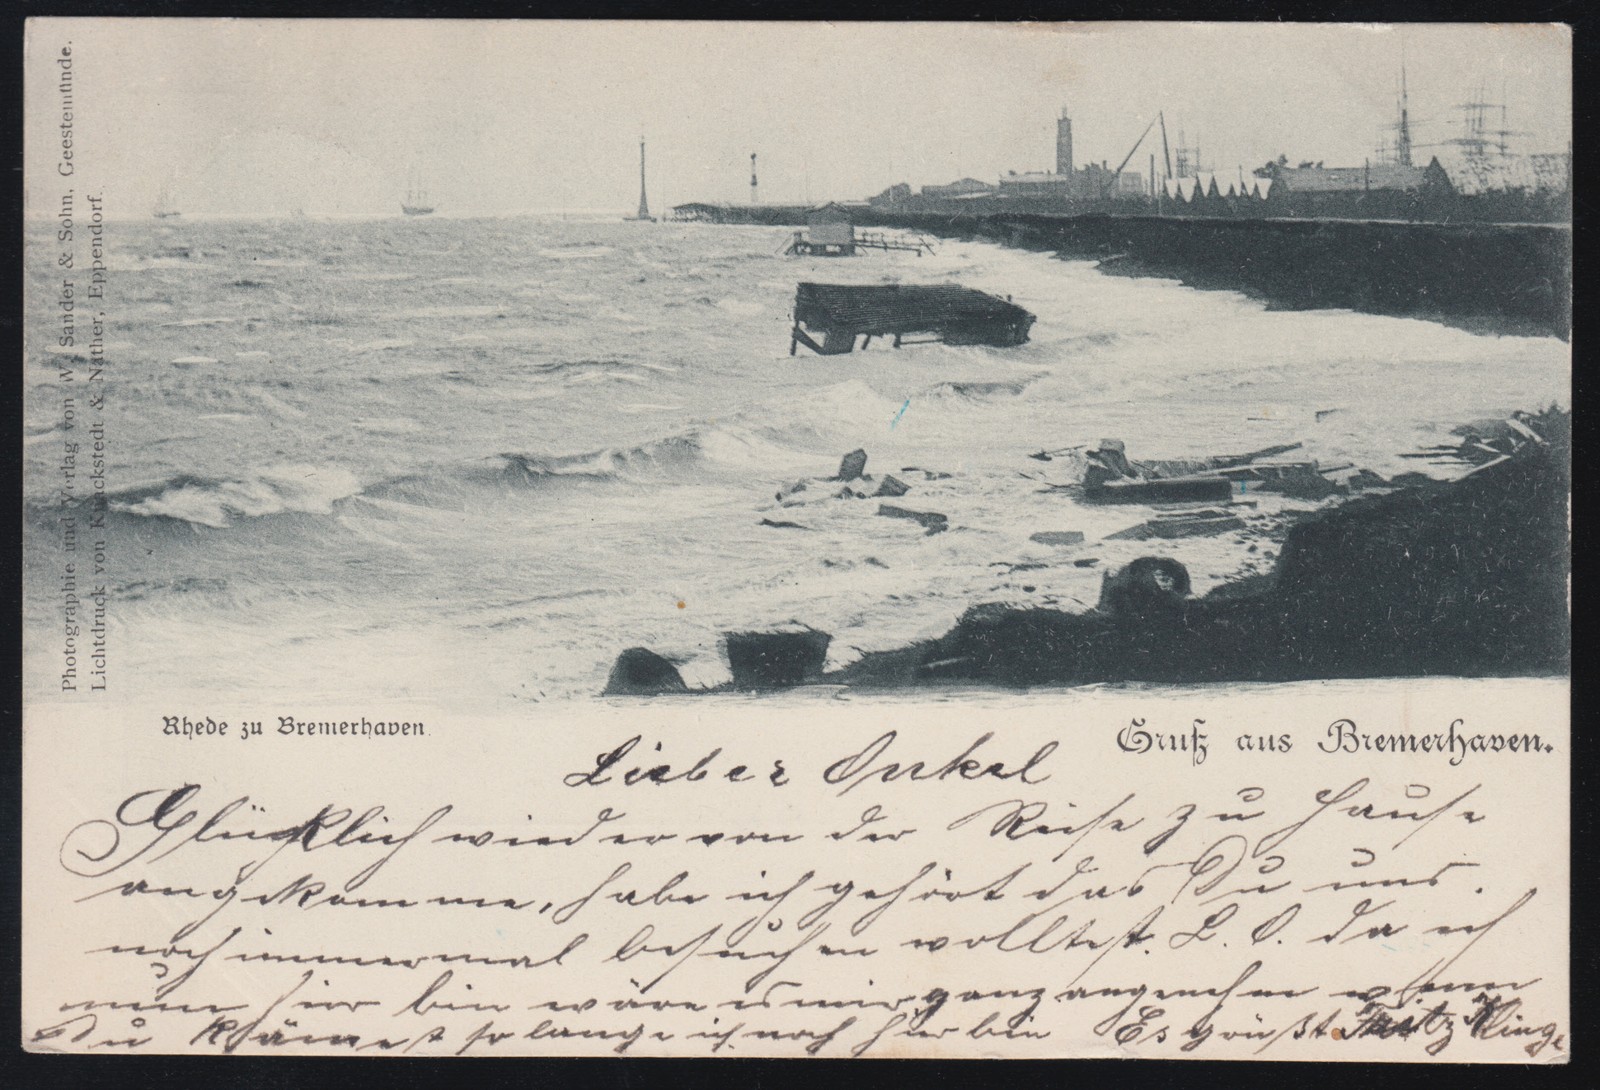 Photographie und Verlag von W. Sander & Sohn, Geestemünde.
Lichtdruck von Knackstedt & Näther, Eppendorf.
Rhede zu Bremerhaven.
Gruß aus Bremerhaven.
Lieber Onkel
Glücklich wieder von der Reise zu Hause
angekommen, habe ich gehört das Du uns.
noch immermal besuchen wolltest. L. O. da ich
nun hier bin wäre es mir ganz angenehm wenn
Du kämest so lange ich noch hier bin Es grüßt Fritz Klinge